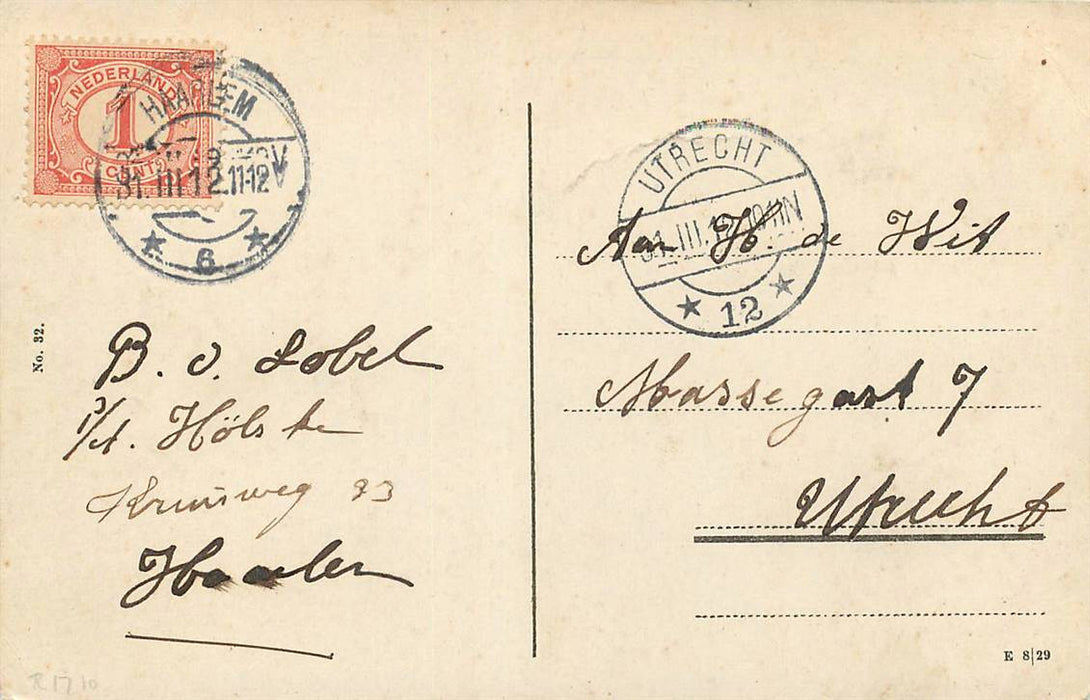 NEDERLAND
1
CENT
HAARLEM
31.III.12.11-12V
6
UTRECHT
31.III.12.10-11N
12
Aan H. de Wit
Massegast 7
Utrecht
No. 32.
B. v. Lobel
p/a. Hölste
Kruisweg 23
Haarlem
E 8|29
R1710